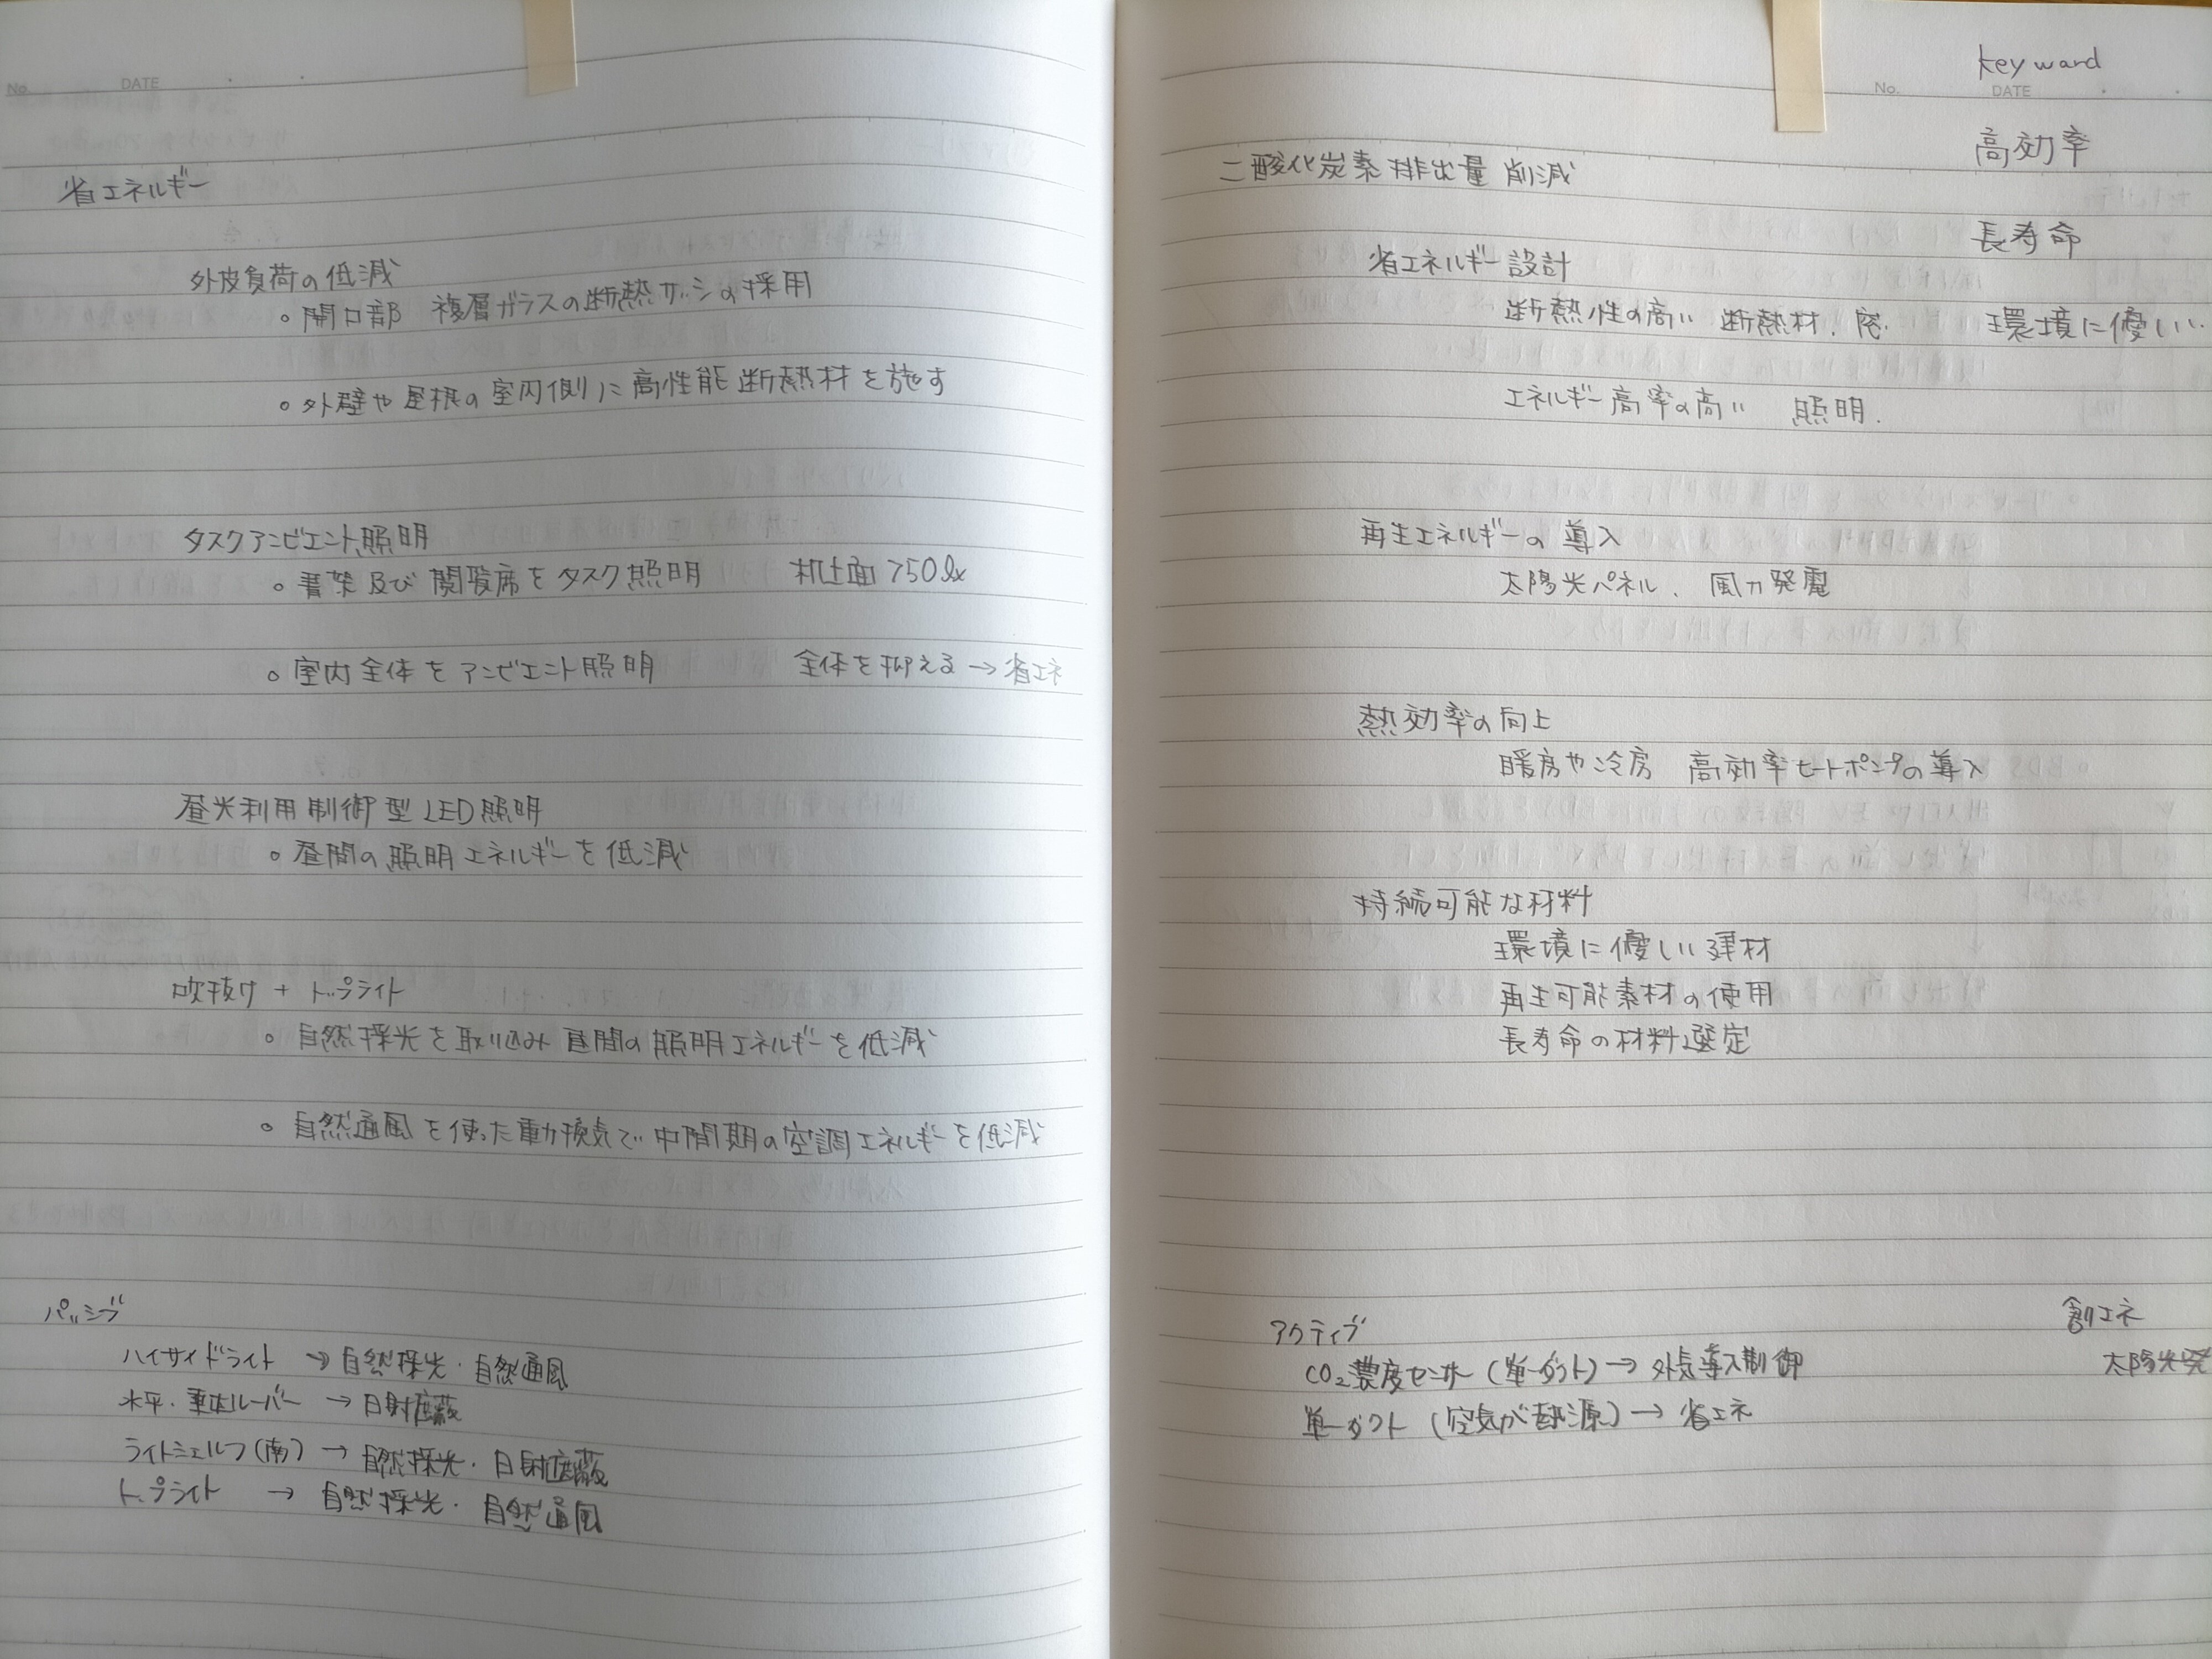 No.
DATE
省エネルギー
外皮負荷の低減
。開口部 複層ガラスの断熱サッシの採用
。外壁や屋根の室内側に高性能断熱材を施す
タスクアンビエント照明
。書架及び閲覧席をタスク照明 机上面750lx
。室内全体をアンビエント照明 全体を抑える→省エネ
昼光利用制御型LED照明
。昼間の照明エネルギーを低減
吹抜け + トップライト
。自然採光を取り込み昼間の照明エネルギーを低減
。自然通風を使った重力換気で中間期の空調エネルギーを低減
パッシブ
ハイサイドライト → 自然採光・自然通風
水平・垂直ルーバー → 日射遮蔽
ライトシェルフ(南) → 自然採光・日射遮蔽
トップライト → 自然採光・自然通風
key ward
No.
DATE
高効率
二酸化炭素排出量 削減
長寿命
省エネルギー設計
断熱性の高い 断熱材、窓. 環境に優しい.
エネルギー高率の高い 照明.
再生エネルギーの導入
太陽光パネル、風力発電
熱効率の向上
暖房や冷房 高効率ヒートポンプの導入
持続可能な材料
環境に優しい建材
再生可能素材の使用
長寿命の材料選定
アクティブ
創エネ
CO₂濃度センサー(単一ダクト)→ 外気導入制御
太陽光発
単一ダクト (空気が熱源) → 省エネ